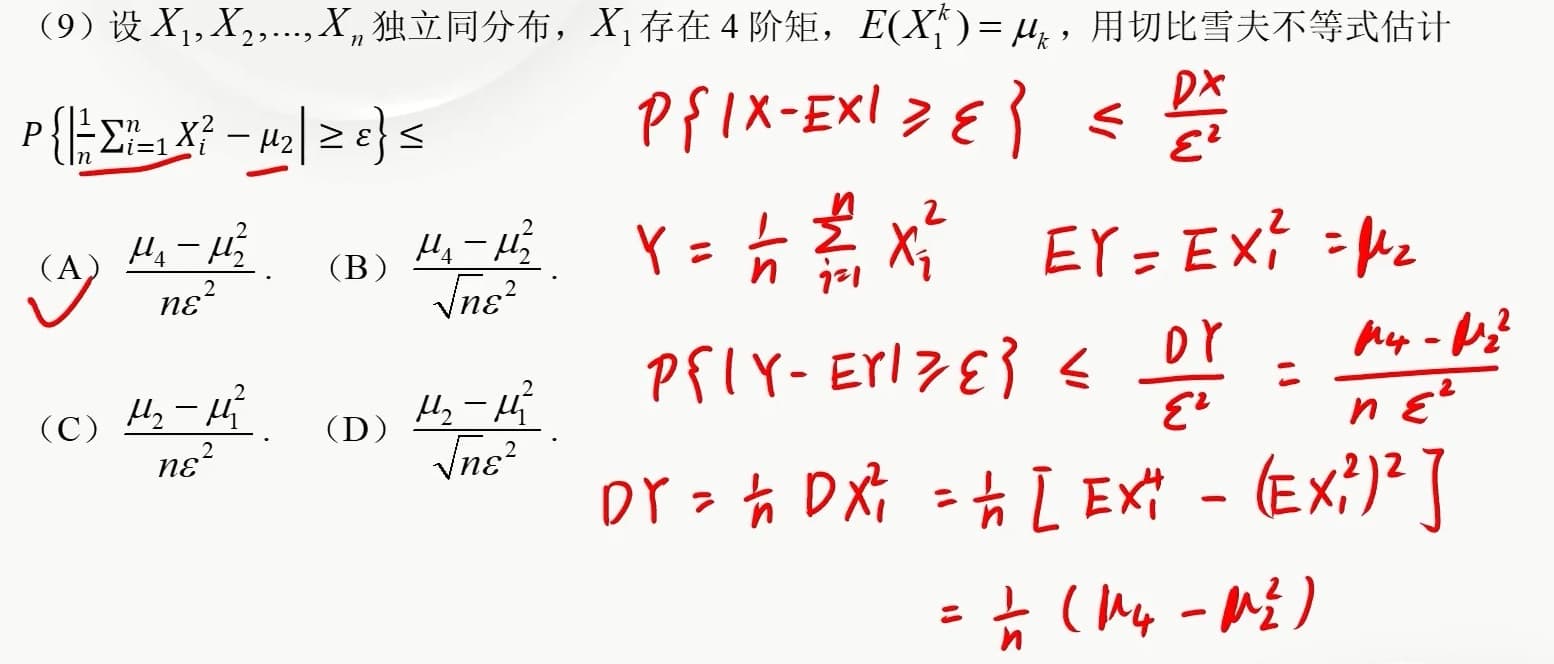 (9)设 X₁, X₂,..., Xₙ 独立同分布，X₁ 存在 4 阶矩，E(X₁ᵏ) = μₖ，用切比雪夫不等式估计
P{|1/n ∑ⁿᵢ₌₁ Xᵢ² − μ₂| ≥ ε} ≤
(A) (μ₄ − μ₂²)/(nε²). (B) (μ₄ − μ₂²)/(√nε²).
(C) (μ₂ − μ₁²)/(nε²). (D) (μ₂ − μ₁²)/(√nε²).
P{|X-EX| ⩾ ε} ≤ DX/ε²
Y = 1/n ∑ⁿᵢ₌₁ Xᵢ² EY = EX₁² = μ₂
P{|Y-EY| ⩾ ε} ≤ DY/ε² = (μ₄ - μ₂²)/(n ε²)
DY = 1/n DX₁² = 1/n [EX₁⁴ - (EX₁²)²]
= 1/n (μ₄ - μ₂²)